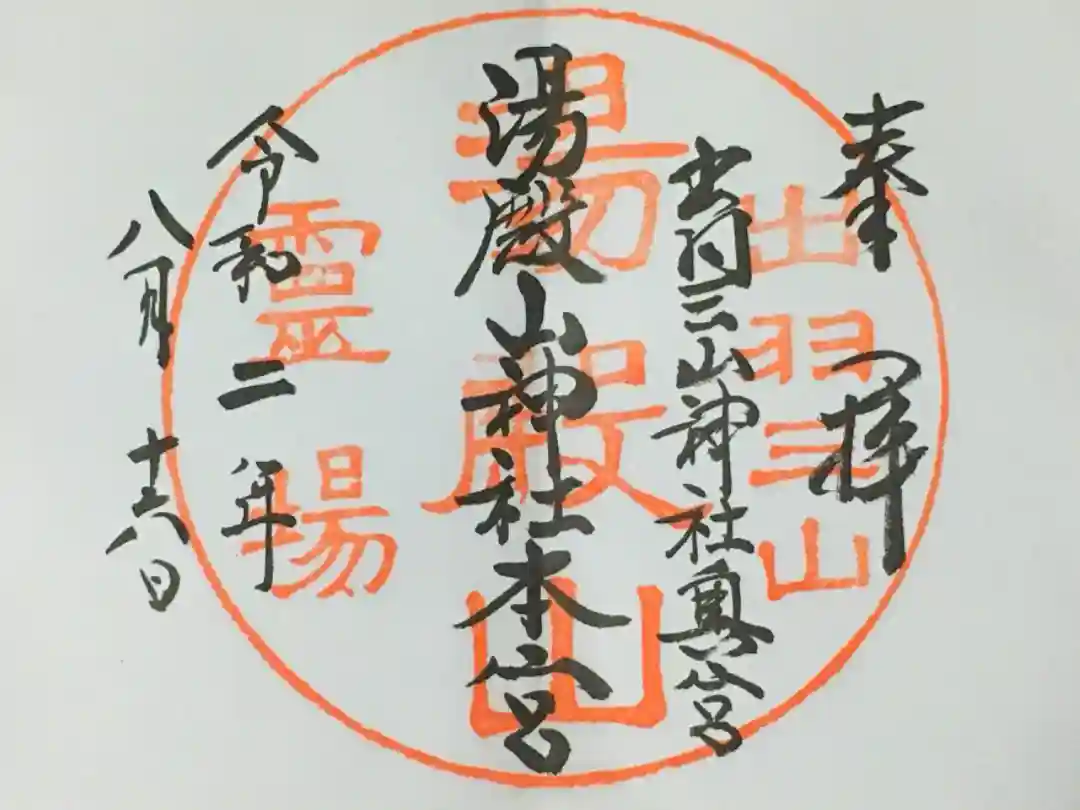 奉拝
出羽三山神社奥宮
湯殿山神社本宮
令和二年
八月十六日
出羽三山
湯殿山
霊場